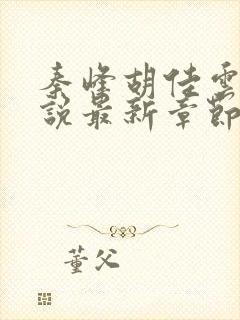 秦峰胡佳雲
說最新章節
董父